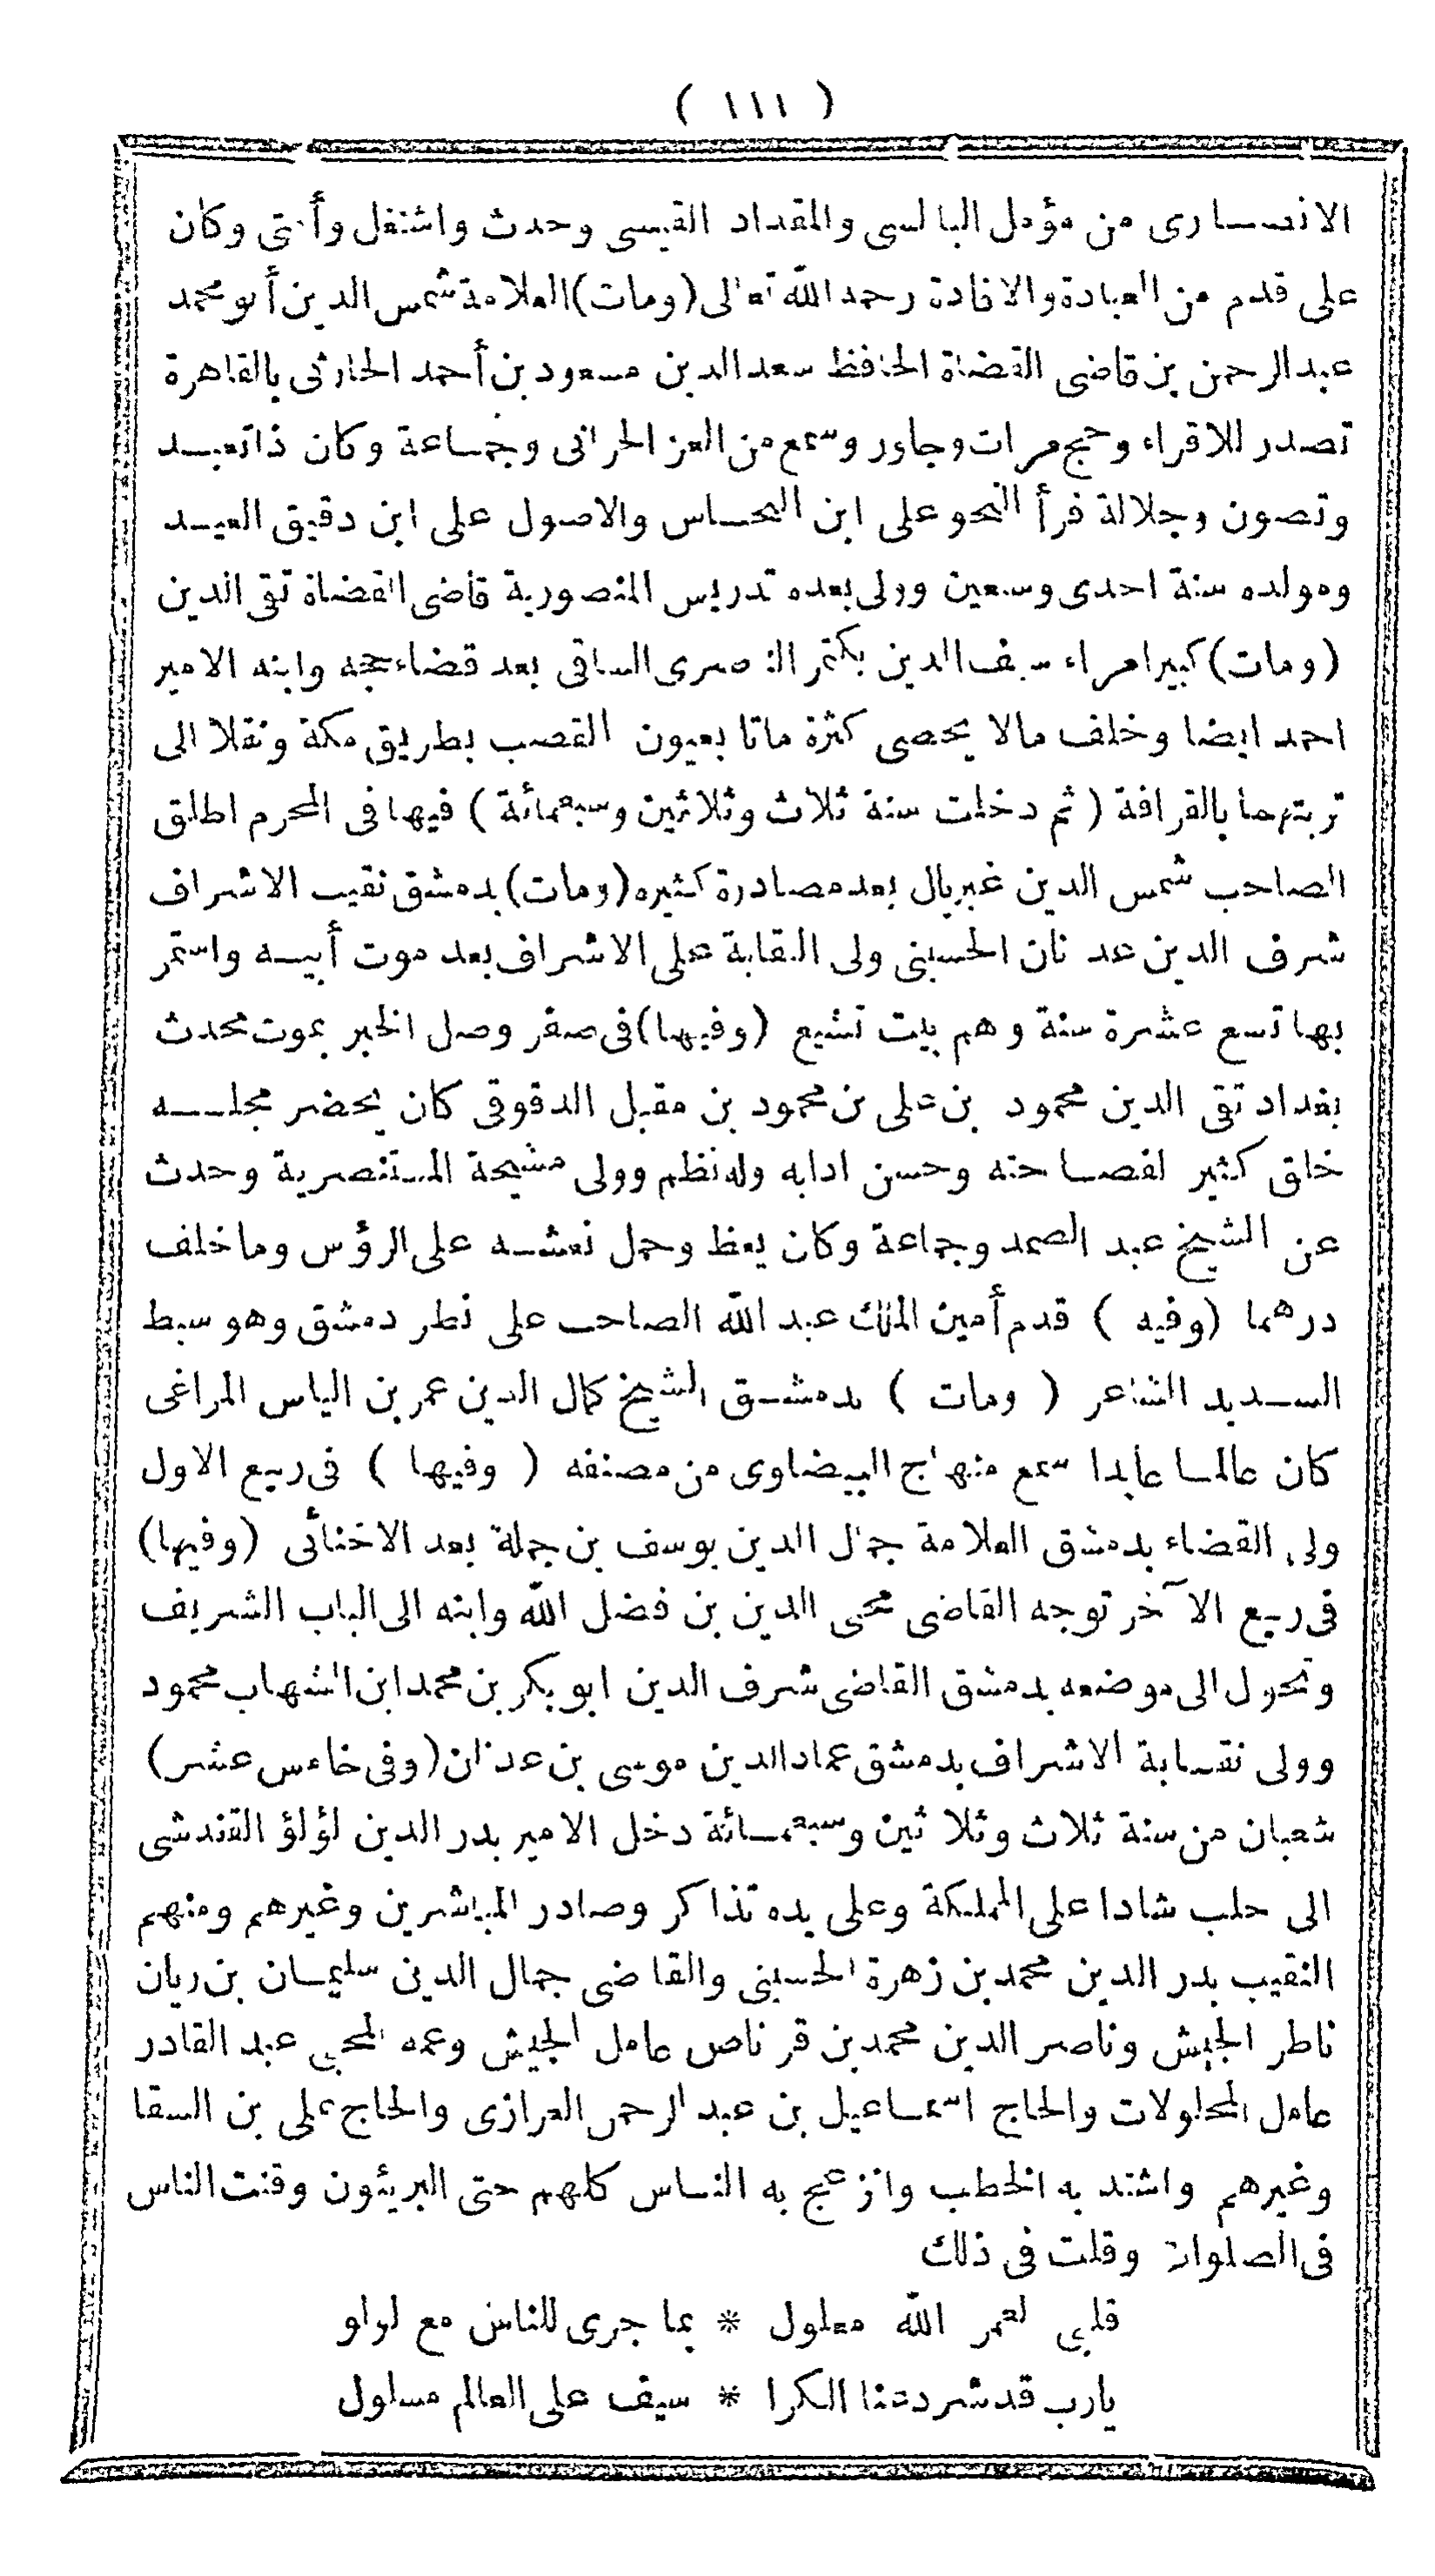 ( ١١١ )
الانصارى من مؤمل البالسى والمقداد القيسى وحدث واشتغل وأفتى وكان
على قدم من العبادة والافادة رحمه الله تعالى (ومات) العلامة شمس الدين أبو محمد
عبد الرحمن بن قاضى القضاة الحافظ سعد الدين مسعود بن أحمد الحارثى بالقاهرة
تصدر للاقراء وحج مرات وجاور وسمع من العز الحرانى وجماعة وكان ذا تعبد
وتصون وجلالة قرأ النحو على ابن النحاس والاصول على ابن دقيق العيد
ومولده سنة احدى وسبعين وولى بعده تدريس المنصورية قاضى القضاة تقى الدين
(ومات) كبير امراء سيف الدين بكتمر الناصرى الساقى بعد قضاء حجه وابنه الامير
احمد ايضا وخلف مالا يحصى كثرة ماتا بعيون القصب بطريق مكة ونقلا الى
تربتهما بالقرافة ( ثم دخلت سنة ثلاث وثلاثين وسبعمائة ) فيها فى المحرم اطلق
الصاحب شمس الدين غبريال بعد مصادرة كثيره (ومات) بدمشق نقيب الاشراف
شرف الدين عدنان الحسينى ولى النقابة على الاشراف بعد موت أبيه واستمر
بها تسع عشرة سنة وهم بيت تشيع (وفيها) فى صفر وصل الخبر بموت محدث
بغداد تقى الدين محمود بن على بن محمود بن مقبل الدقوقى كان يحضر مجلسه
خلق كثير لفصاحته وحسن ادابه وله نظم وولى مشيخة المستنصرية وحدث
عن الشيخ عبد الصمد وجماعة وكان يعظ وحمل نعشه على الرؤس وما خلف
درهما (وفيه ) قدم أمين الملك عبد الله الصاحب على نظر دمشق وهو سبط
السديد الشاعر ( ومات ) بدمشق الشيخ كمال الدين عمر بن الياس المراغى
كان عالما عابدا سمع منهاج البيضاوى من مصنفه ( وفيها ) فى ربيع الاول
ولى القضاء بدمشق العلامة جمال الدين يوسف بن جملة بعد الاخنائى (وفيها)
فى ربيع الآخر توجه القاضى محيى الدين بن فضل الله وابنه الى الباب الشريف
وتحول الى موضعه بدمشق القاضى شرف الدين ابو بكر بن محمد ابن الشهاب محمود
وولى نقابة الاشراف بدمشق عماد الدين موسى بن عدنان (وفى خامس عشر)
شعبان من سنة ثلاث وثلاثين وسبعمائة دخل الامير بدر الدين لؤلؤ القندشى
الى حلب شادا على المملكة وعلى يده تذاكر وصادر المباشرين وغيرهم ومنهم
النقيب بدر الدين محمد بن زهرة الحسينى والقاضى جمال الدين سليمان بن ريان
ناظر الجيش وناصر الدين محمد بن قرناص عامل الجيش وعمه المحبى عبد القادر
عامل المحلولات والحاج اسماعيل بن عبد الرحمن العزازى والحاج على بن السقا
وغيرهم واشتد به الخطب وانزعج به الناس كلهم حتى البريئون وقنت الناس
فى الصلوات وقلت فى ذلك
قلبى لعمر الله معلول * بما جرى للناس مع لولو
يارب قد شرد عنا الكرا * سيف على العالم مسلول